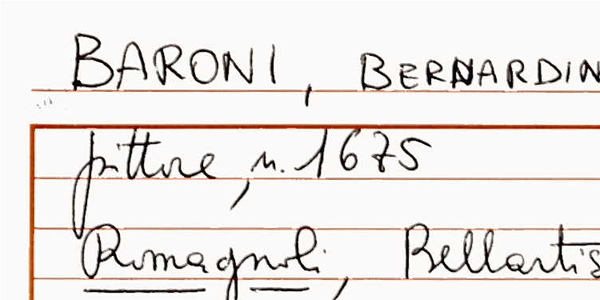 BARONI, BERNARDIN
pittore, n. 1675
Romagnoli, Bellartis